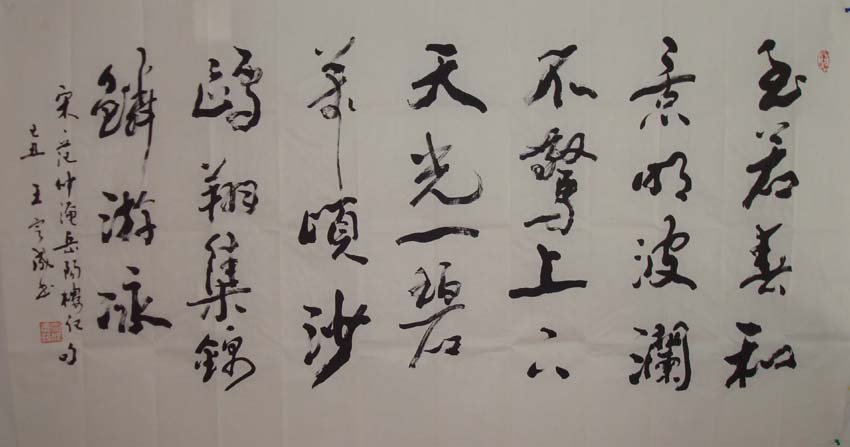 至若春和
景明波瀾
不驚上下
天光一碧
萬頃沙
鷗翔集錦
鱗游泳
宋范仲淹岳陽樓記句
己丑 王